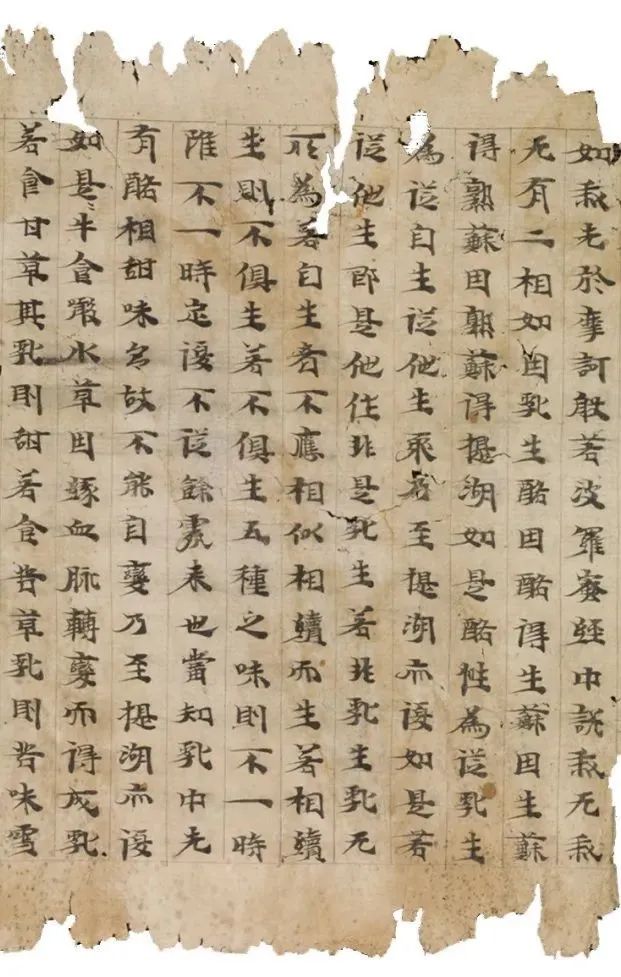 如我先於摩訶般若波羅蜜經中說我无我
无有二相如因乳生酪因酪得生蘇因生蘇
得熟蘇因熟蘇得提湖如是酪性為從乳生
為從自生從他生若至提湖亦復如是若
從他生即是他住非是乳生若非乳生乳无
所為若自生者不應相似相續而生若相續
生則不俱生若不俱生五種之味則不一時
雖不一時定復不從餘處來也當知乳中先
有酪相甜味多故不能自變乃至提湖亦復
如是牛食噉水草因緣血脉轉變而得成乳
若食甘草其乳則甜若食苦草乳則苦味雪